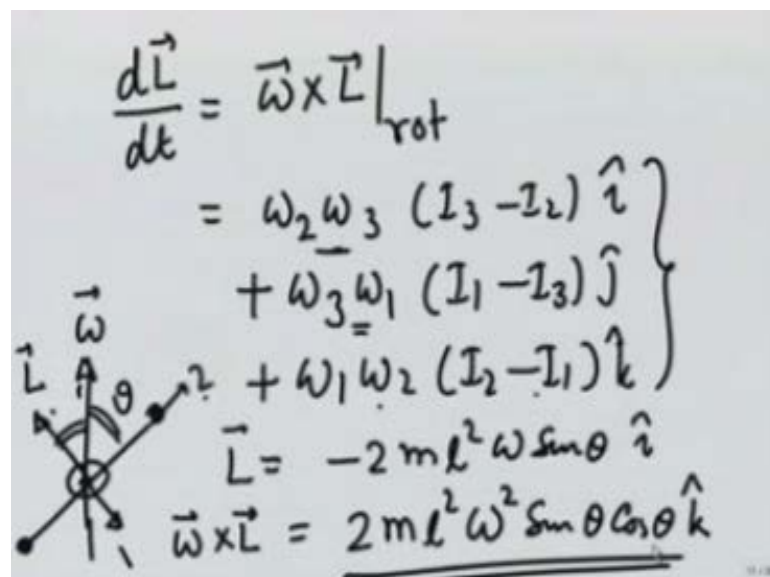 dL⃗/dt = ω⃗ × L⃗|rot
= ω₂ω₃ (I₃ - I₂) î
+ ω₃ω₁ (I₁ - I₃) ĵ
+ ω₁ω₂ (I₂ - I₁) k̂
ω⃗
L⃗ θ 2
L⃗ = -2ml²ω sinθ î
1
ω⃗ × L⃗ = 2ml²ω² sinθ cosθ k̂